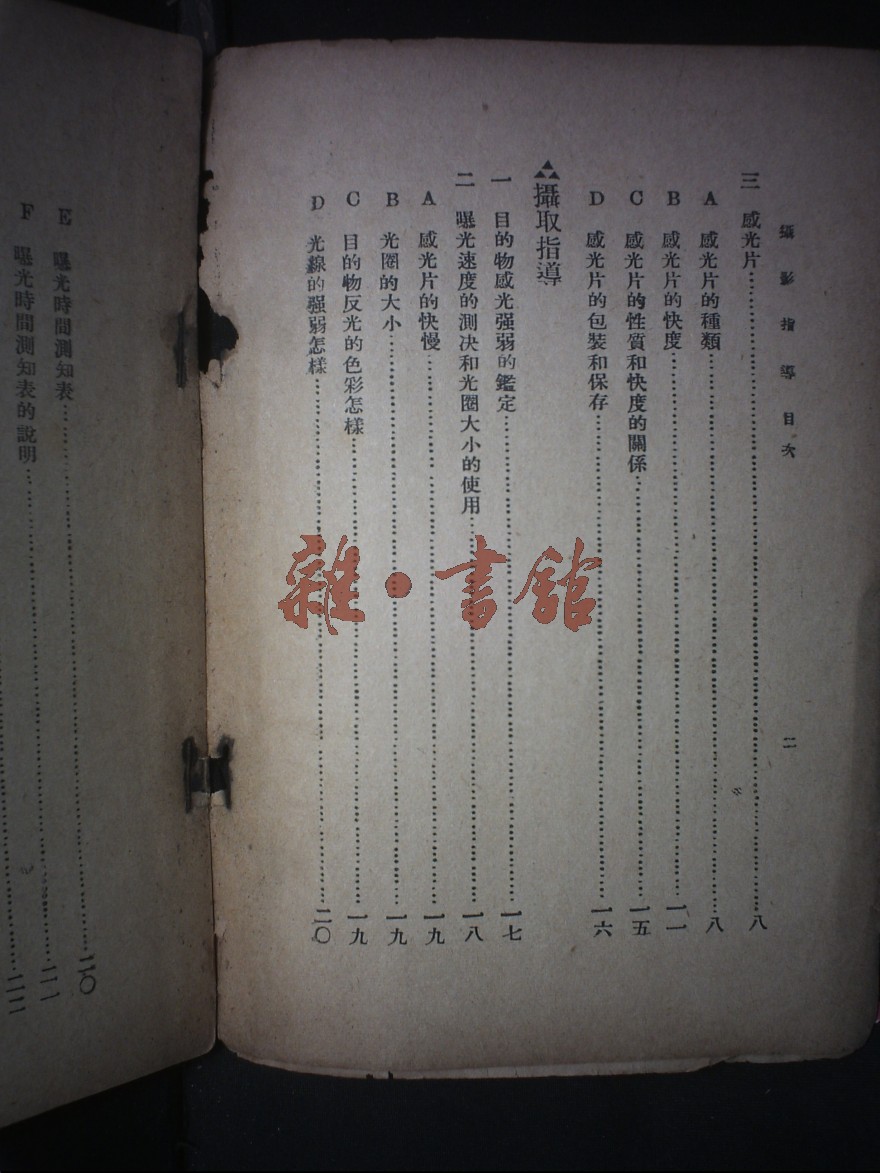 攝影指導目次
二
三 感光片……八
A 感光片的種類……八
B 感光片的快度……一一
C 感光片的性質和快度的關係……一五
D 感光片的包裝和保存……一六
攝取指導
一 目的物感光强弱的鑑定……一七
二 曝光速度的測决和光圈大小的使用……一八
A 感光片的快慢……一九
B 光圈的大小……一九
C 目的物反光的色彩怎樣……一九
D 光線的强弱怎樣……二〇
E 曝光時間測知表……
二〇
F 曝光時間測知表的說明……
雜·書舘